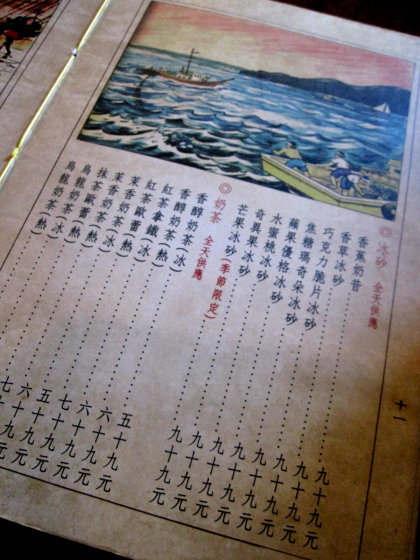 十一
◎冰砂 全天供應
香蕉奶昔……九十九元
香草冰砂……九十九元
巧克力脆片冰砂……九十九元
焦糖瑪奇朵冰砂……九十九元
蘋果優格冰砂……九十九元
水蜜桃冰砂……九十九元
奇異果冰砂……九十九元
芒果冰砂(季節限定)……九十九元
◎奶茶 全天供應
香醇奶茶(冰)……五十九元
香醇奶茶(熱)……六十九元
紅茶拿鐵(熱)……六十九元
茉香奶茶(冰)
抹茶歐蕾
烏龍奶茶(冰)
烏龍奶茶(熱)